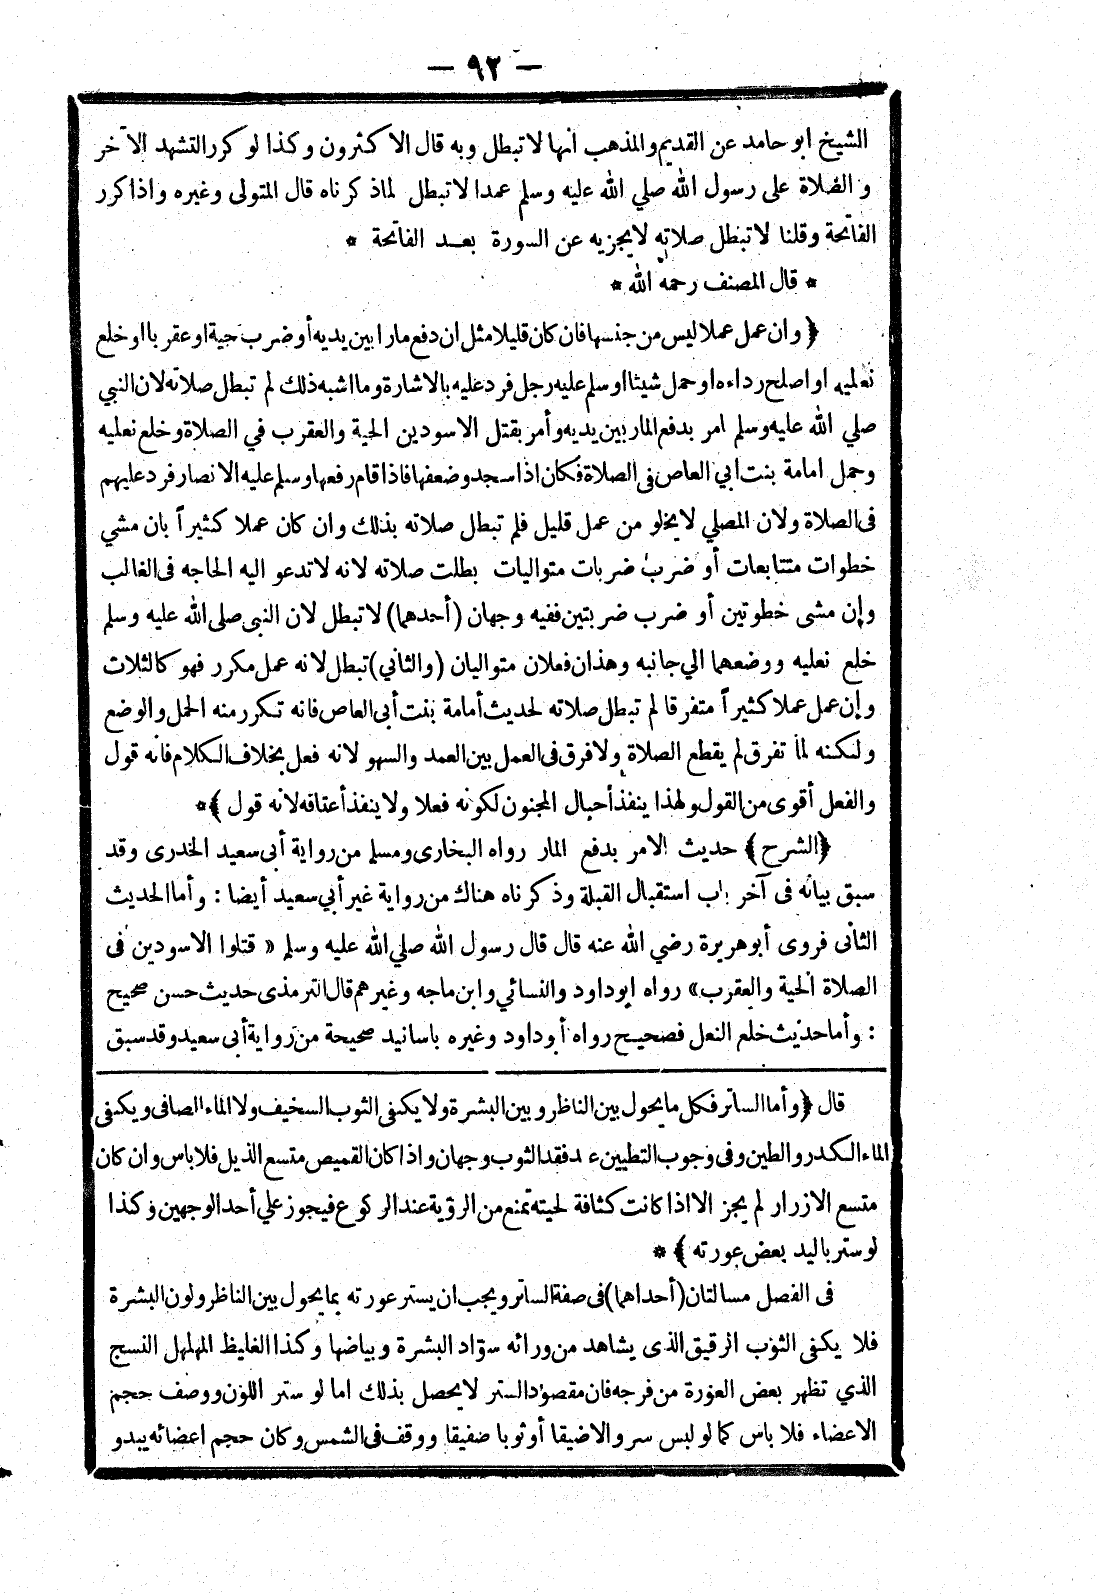 — ٩٢ —
الشيخ ابو حامد عن القديم والمذهب أنها لا تبطل وبه قال الاكثرون وكذا لو كرر التشهد الآخر
والصلاة على رسول الله صلي الله عليه وسلم عمدا لا تبطل لماذكرناه قال المتولى وغيره واذا كرر
الفاتحة وقلنا لا تبطل صلاته لا يجزيه عن السورة بعد الفاتحة *
* قال المصنف رحمه الله *
﴿ وان عمل عملا ليس من جنسها فان كان قليلا مثل ان دفع مارا بين يديه أو ضرب حية او عقربا او خلع
نعليه او اصلح رداءه او حمل شيئا او سلم عليه رجل فرد عليه بالاشارة وما اشبه ذلك لم تبطل صلاته لان النبي
صلي الله عليه وسلم امر بدفع المار بين يديه وأمر بقتل الاسودين الحية والعقرب في الصلاة وخلع نعليه
وحمل امامة بنت ابي العاص في الصلاة فكان اذا سجد وضعها فاذا قام رفعها وسلم عليه الانصار فرد عليهم
فى الصلاة ولان المصلي لا يخلو من عمل قليل فلم تبطل صلاته بذلك وان كان عملا كثيراً بان مشي
خطوات متتابعات أو ضرب ضربات متواليات بطلت صلاته لانه لا تدعو اليه الحاجه فى الغالب
وإن مشى خطوتين أو ضرب ضربتين ففيه وجهان (أحدهما) لا تبطل لان النبى صلى الله عليه وسلم
خلع نعليه ووضعهما الي جانبه وهذان فعلان متواليان (والثاني) تبطل لانه عمل مكرر فهو كالثلاث
وإن عمل عملا كثيراً متفرقا لم تبطل صلاته لحديث أمامة بنت أبى العاص فانه تكرر منه الحمل والوضع
ولكنه لما تفرق لم يقطع الصلاة ولا فرق فى العمل بين العمد والسهو لانه فعل بخلاف الكلام فانه قول
والفعل أقوى من القول ولهذا ينفذ أحبال المجنون لكونه فعلا ولا ينفذ أعتاقه لانه قول ﴾*
﴿الشرح﴾ حديث الامر بدفع المار رواه البخارى ومسلم من رواية أبى سعيد الخدرى وقد
سبق بيانه فى آخر باب استقبال القبلة وذكرناه هناك من رواية غير أبي سعيد أيضا : وأما الحديث
الثانى فروى أبو هريرة رضي الله عنه قال قال رسول الله صلي الله عليه وسلم « قتلوا الاسودين فى
الصلاة الحية والعقرب» رواه ابو داود والنسائي وابن ماجه وغيرهم قال الترمذى حديث حسن صحيح
: وأما حديث خلع النعل فصحيح رواه أبو داود وغيره باسانيد صحيحة من رواية أبى سعيد وقد سبق
قال ﴿ وأما الساتر فكل ما يحول بين الناظر وبين البشرة ولا يكفى الثوب السخيف ولا الماء الصافى ويكفى
الماء الكدر والطين وفى وجوب التطيين عند فقد الثوب وجهان واذا كان القميص متسع الذيل فلا باس وان كان
متسع الازرار لم يجز الا اذا كانت كثافة لحيته تمنع من الرؤية عند الركوع فيجوز علي أحد الوجهين وكذا
لو ستر باليد بعض عورته ﴾ *
فى الفصل مسالتان (أحداهما) فى صفة الساتر ويجب ان يستر عورته بما يحول بين الناظر ولون البشرة
فلا يكفى الثوب الرقيق الذى يشاهد من ورائه سواد البشرة وبياضها وكذا الغليظ المهلهل النسج
الذي تظهر بعض العورة من فرجه فان مقصود الستر لا يحصل بذلك اما لو ستر اللون ووصف حجم
الاعضاء فلا باس كما لو لبس سروالا ضيقا أو ثوبا صفيقا ووقف فى الشمس وكان حجم اعضائه يبدو